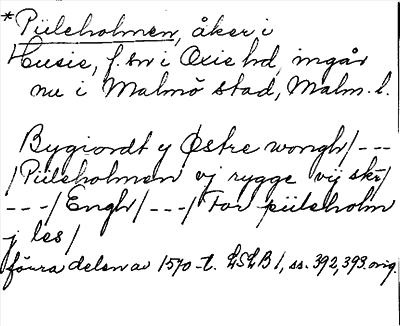 *Piileholmen, åker i
Husie, f. sn i Oxie hd, ingår
nu i Malmö stad, Malm. l.
Bygiordt y Østre wongh/---
/Piileholmen vj rygge vij sk/
---/Engh/---/For piilsholm
j les/
förra delen av 1570-t. LSLB 1, ss. 392, 393. orig.